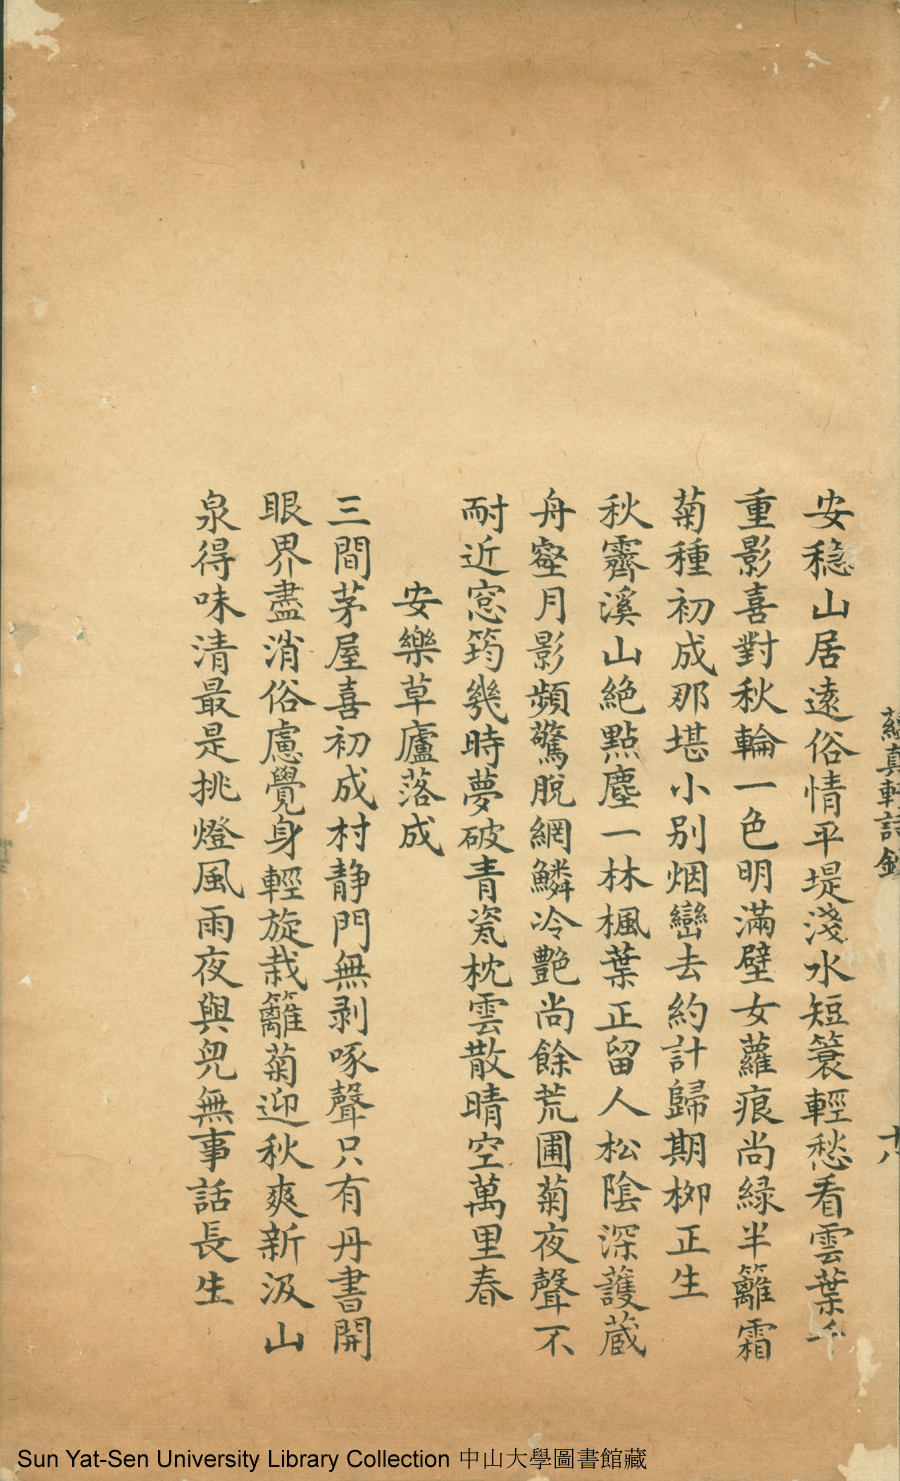 蘊真軒詩鈔
十八
安穩山居遠俗情平堤淺水短簑輕愁看雲葉千
重影喜對秋輪一色明滿壁女蘿痕尚緑半籬霜
菊種初成那堪小别烟巒去約計歸期栁正生
秋霽溪山絶點塵一林楓葉正留人松陰深護蔵
舟壑月影頻驚脱網鱗冷艶尚餘荒圃菊夜聲不
耐近窓筠幾時夢破青瓷枕雲散晴空萬里春
安樂草廬落成
三間茅屋喜初成村静門無剥啄聲只有丹書開
眼界盡消俗慮覺身輕旋栽籬菊迎秋爽新汲山
泉得味清最是挑燈風雨夜與兒無事話長生
Sun Yat-Sen University Library Collection 中山大學圖書館藏